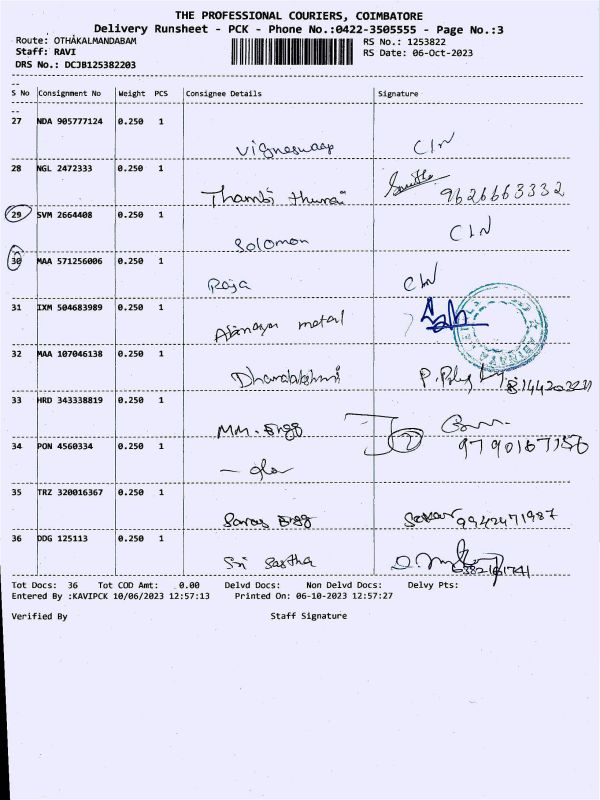 THE PROFESSIONAL COURIERS, COIMBATORE
Delivery Runsheet - PCK - Phone No.:0422-3505555 - Page No.:3
Route: OTHAKALMANDABAM RS No.: 1253822
Staff: RAVI RS Date: 06-Oct-2023
DRS No.: DCJB125382203
S No Consignment No Weight PCS Consignee Details Signature
27 NDA 905777124 0.250 1
CLN
28 NGL 2472333 0.250 1
Thambi thurai 9626663332
29 SVM 2664408 0.250 1
Solomon CLN
30 MAA 571256006 0.250 1
Raja CLN
31 IXM 504683989 0.250 1
metal
32 MAA 107046138 0.250 1
Dhanalakshmi
33 HRD 343338819 0.250 1
MM. Engg
34 PON 4560334 0.250 1
9790167156
- do
35 TRZ 320016367 0.250 1
Saras Engg Sekar 9942471987
36 DDG 125113 0.250 1
Sri Sastha 6382161741
Tot Docs: 36 Tot COD Amt: 0.00 Delvd Docs: Non Delvd Docs: Delvy Pts:
Entered By :KAVIPCK 10/06/2023 12:57:13 Printed On: 06-10-2023 12:57:27
Verified By Staff Signature